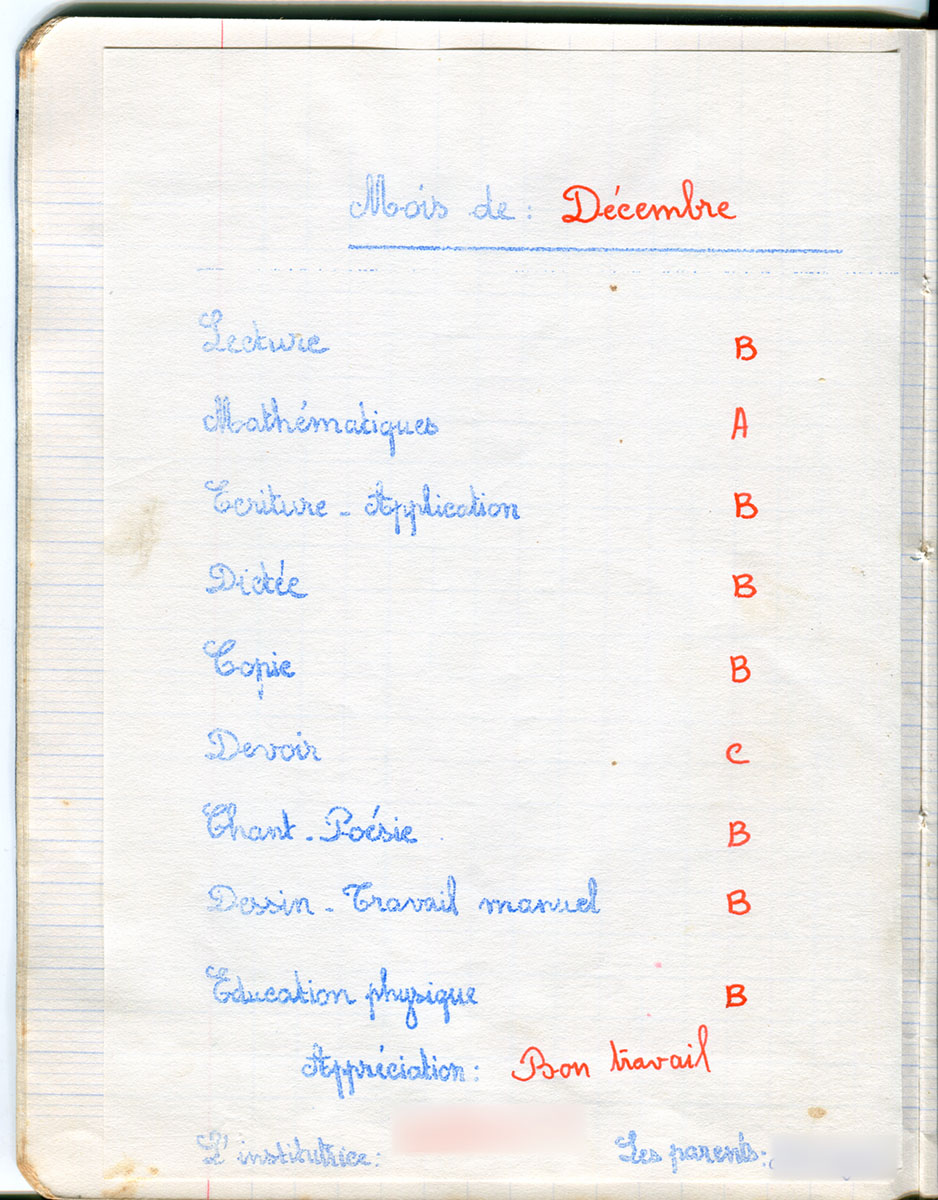 Mois de : Décembre
Lecture B
Mathématiques A
Ecriture - Application B
Dictée B
Copie B
Devoir C
Chant - Poésie B
Dessin - Travail manuel B
Education physique B
Appréciation : Bon travail
L'institutrice : Les parents :